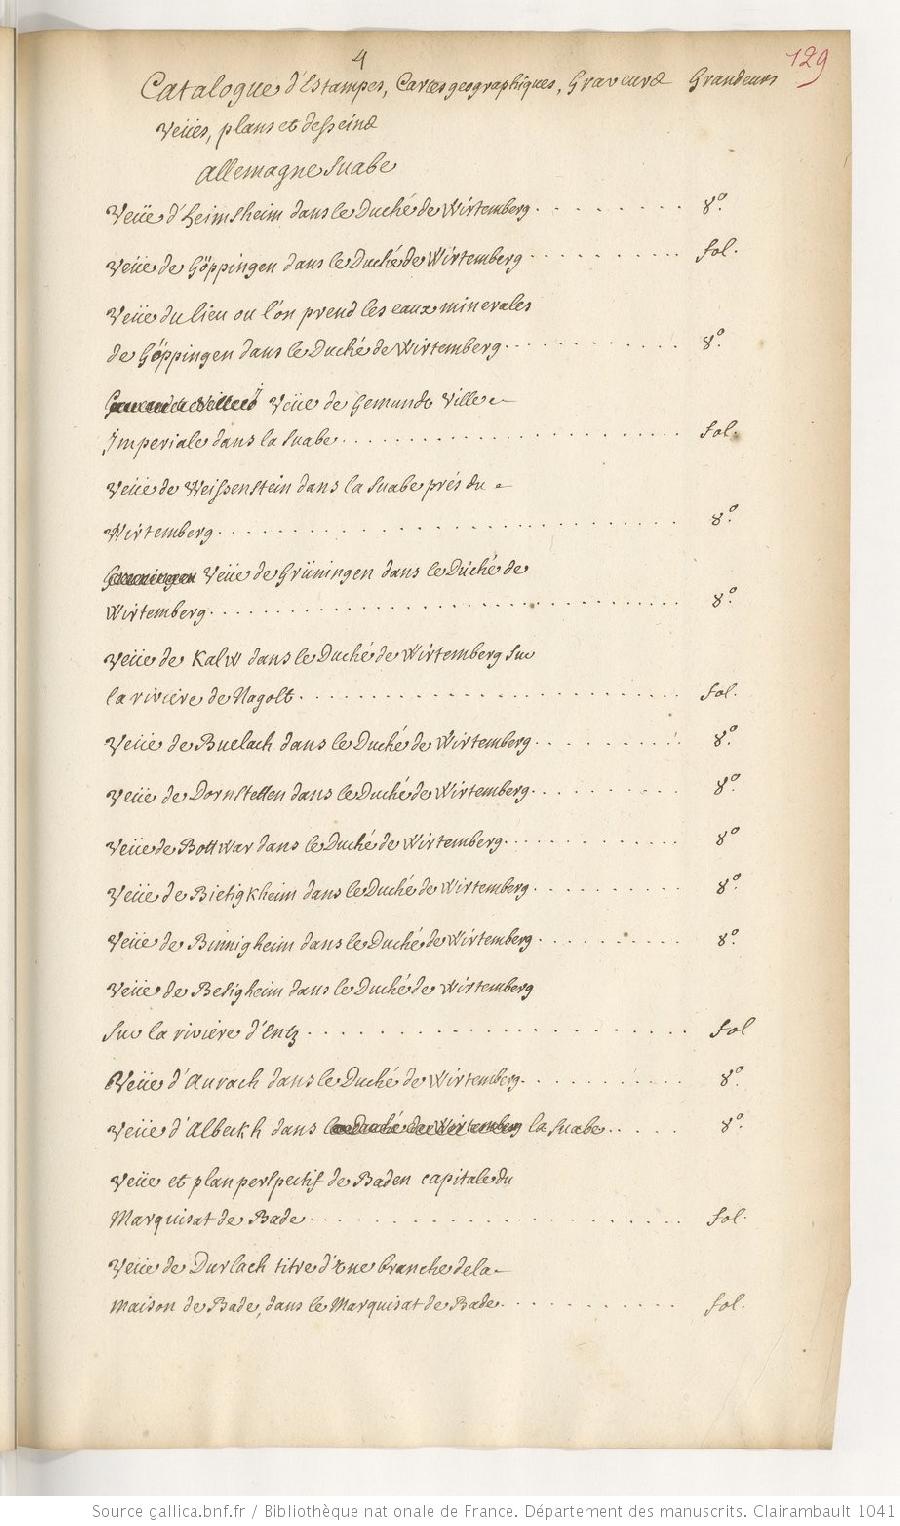 4
129
Catalogue d'Estampes, Cartes geographiques, Graveures Grandeurs
Veües, plans et desseins
Allemagne Suabe
Veüe d'Heimsheim dans le Duché de Wirtemberg . . . . . . . . 8º.
Veüe de Göppingen dans le Duché de Wirtemberg . . . . . . . . fol.
Veüe du lieu ou l'on prend les eaux minerales
de Göppingen dans le Duché de Wirtemberg . . . . . . . . 8º.
Veüe de Gemunde Ville
Imperiale dans la Suabe . . . . . . . . fol.
Veüe de Weissenstein dans la Suabe prés du
Wirtemberg . . . . . . . . 8º.
Veüe de Grüningen dans le Duché de
Wirtemberg . . . . . . . . 8º.
Veüe de Kalw dans le Duché de Wirtemberg sur
la riviere de Nagolt . . . . . . . . fol.
Veüe de Buelach dans le Duché de Wirtemberg . . . . . . . . 8º.
Veüe de Dornstetten dans le Duché de Wirtemberg . . . . . . . . 8º.
Veüe de Bottwar dans le Duché de Wirtemberg . . . . . . . . 8º.
Veüe de Bietigkheim dans le Duché de Wirtemberg . . . . . . . . 8º.
Veüe de Binnigheim dans le Duché de Wirtemberg . . . . . . . . 8º.
Veüe de Besigheim dans le Duché de Wirtemberg
sur la riviere d'Entz . . . . . . . . fol
Veüe d'Aurach dans le Duché de Wirtemberg . . . . . . . . 8º.
Veüe d'Albeckh dans la Suabe . . . . . 8º.
Veüe et plan perspectif de Baden capitale du
Marquisat de Bade . . . . . . . . fol.
Veüe de Durlach titre d'une branche de la
maison de Bade, dans le Marquisat de Bade . . . . . . . . fol.
Source gallica.bnf.fr / Bibliothèque nationale de France. Département des manuscrits. Clairambault 1041